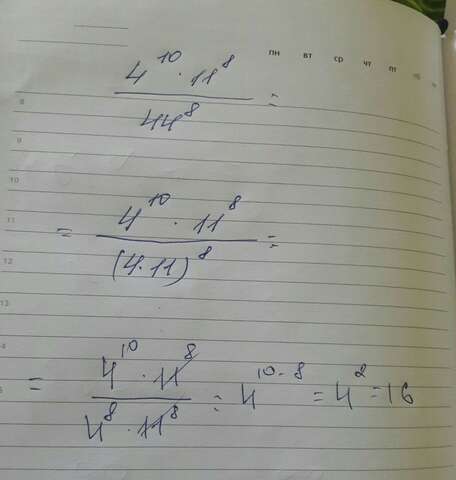 пн вт ср чт пт
4^10 · 11^8
44^8 =
8
9
10
= 4^10 · 11^8
11
(4·11)^8 =
12
13
4^10 · 11^8
= 4^8 · 11^8 = 4^10-8 = 4^2 = 16